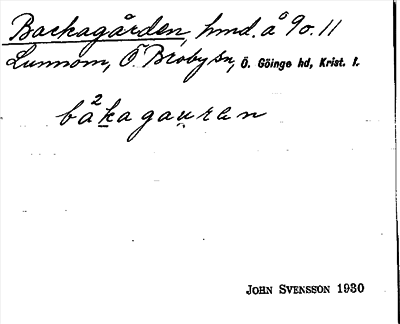 Backagården, hmd. å 9o.11
Lunnom, Ö. Broby sn, Ö. Göinge hd, Krist. l.
bå²kagauran
JOHN SVENSSON 1930